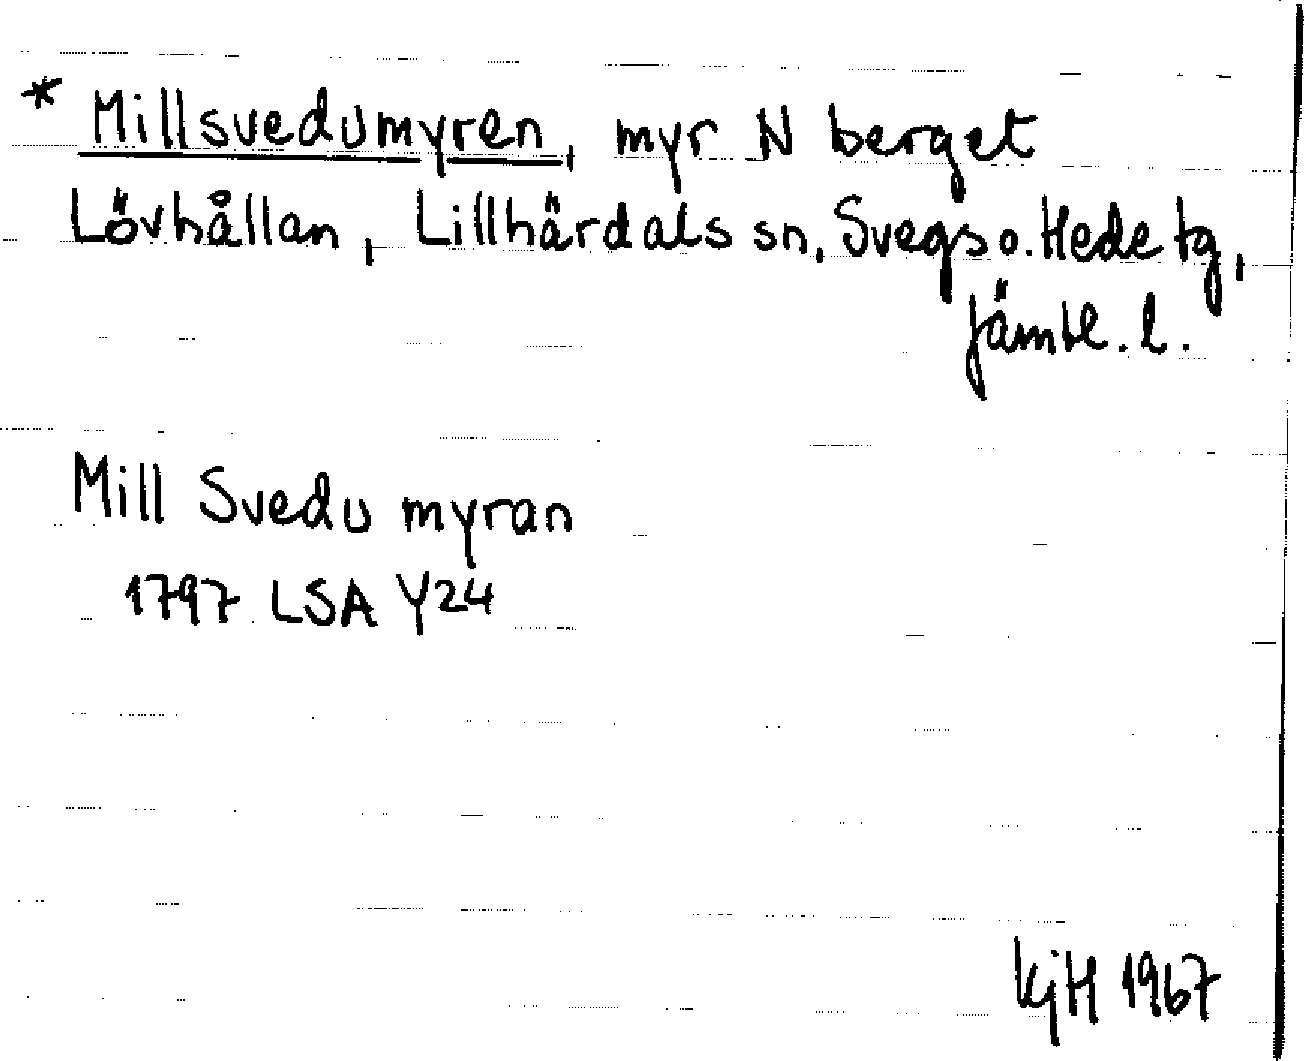 * Millsvedumyren, myr N berget
Lövhållan, Lillhärdals sn, Svegs o. Hede tg,
Jämtl. l.
Mill Svedu myran
1797 LSA Y24
KjH 1967